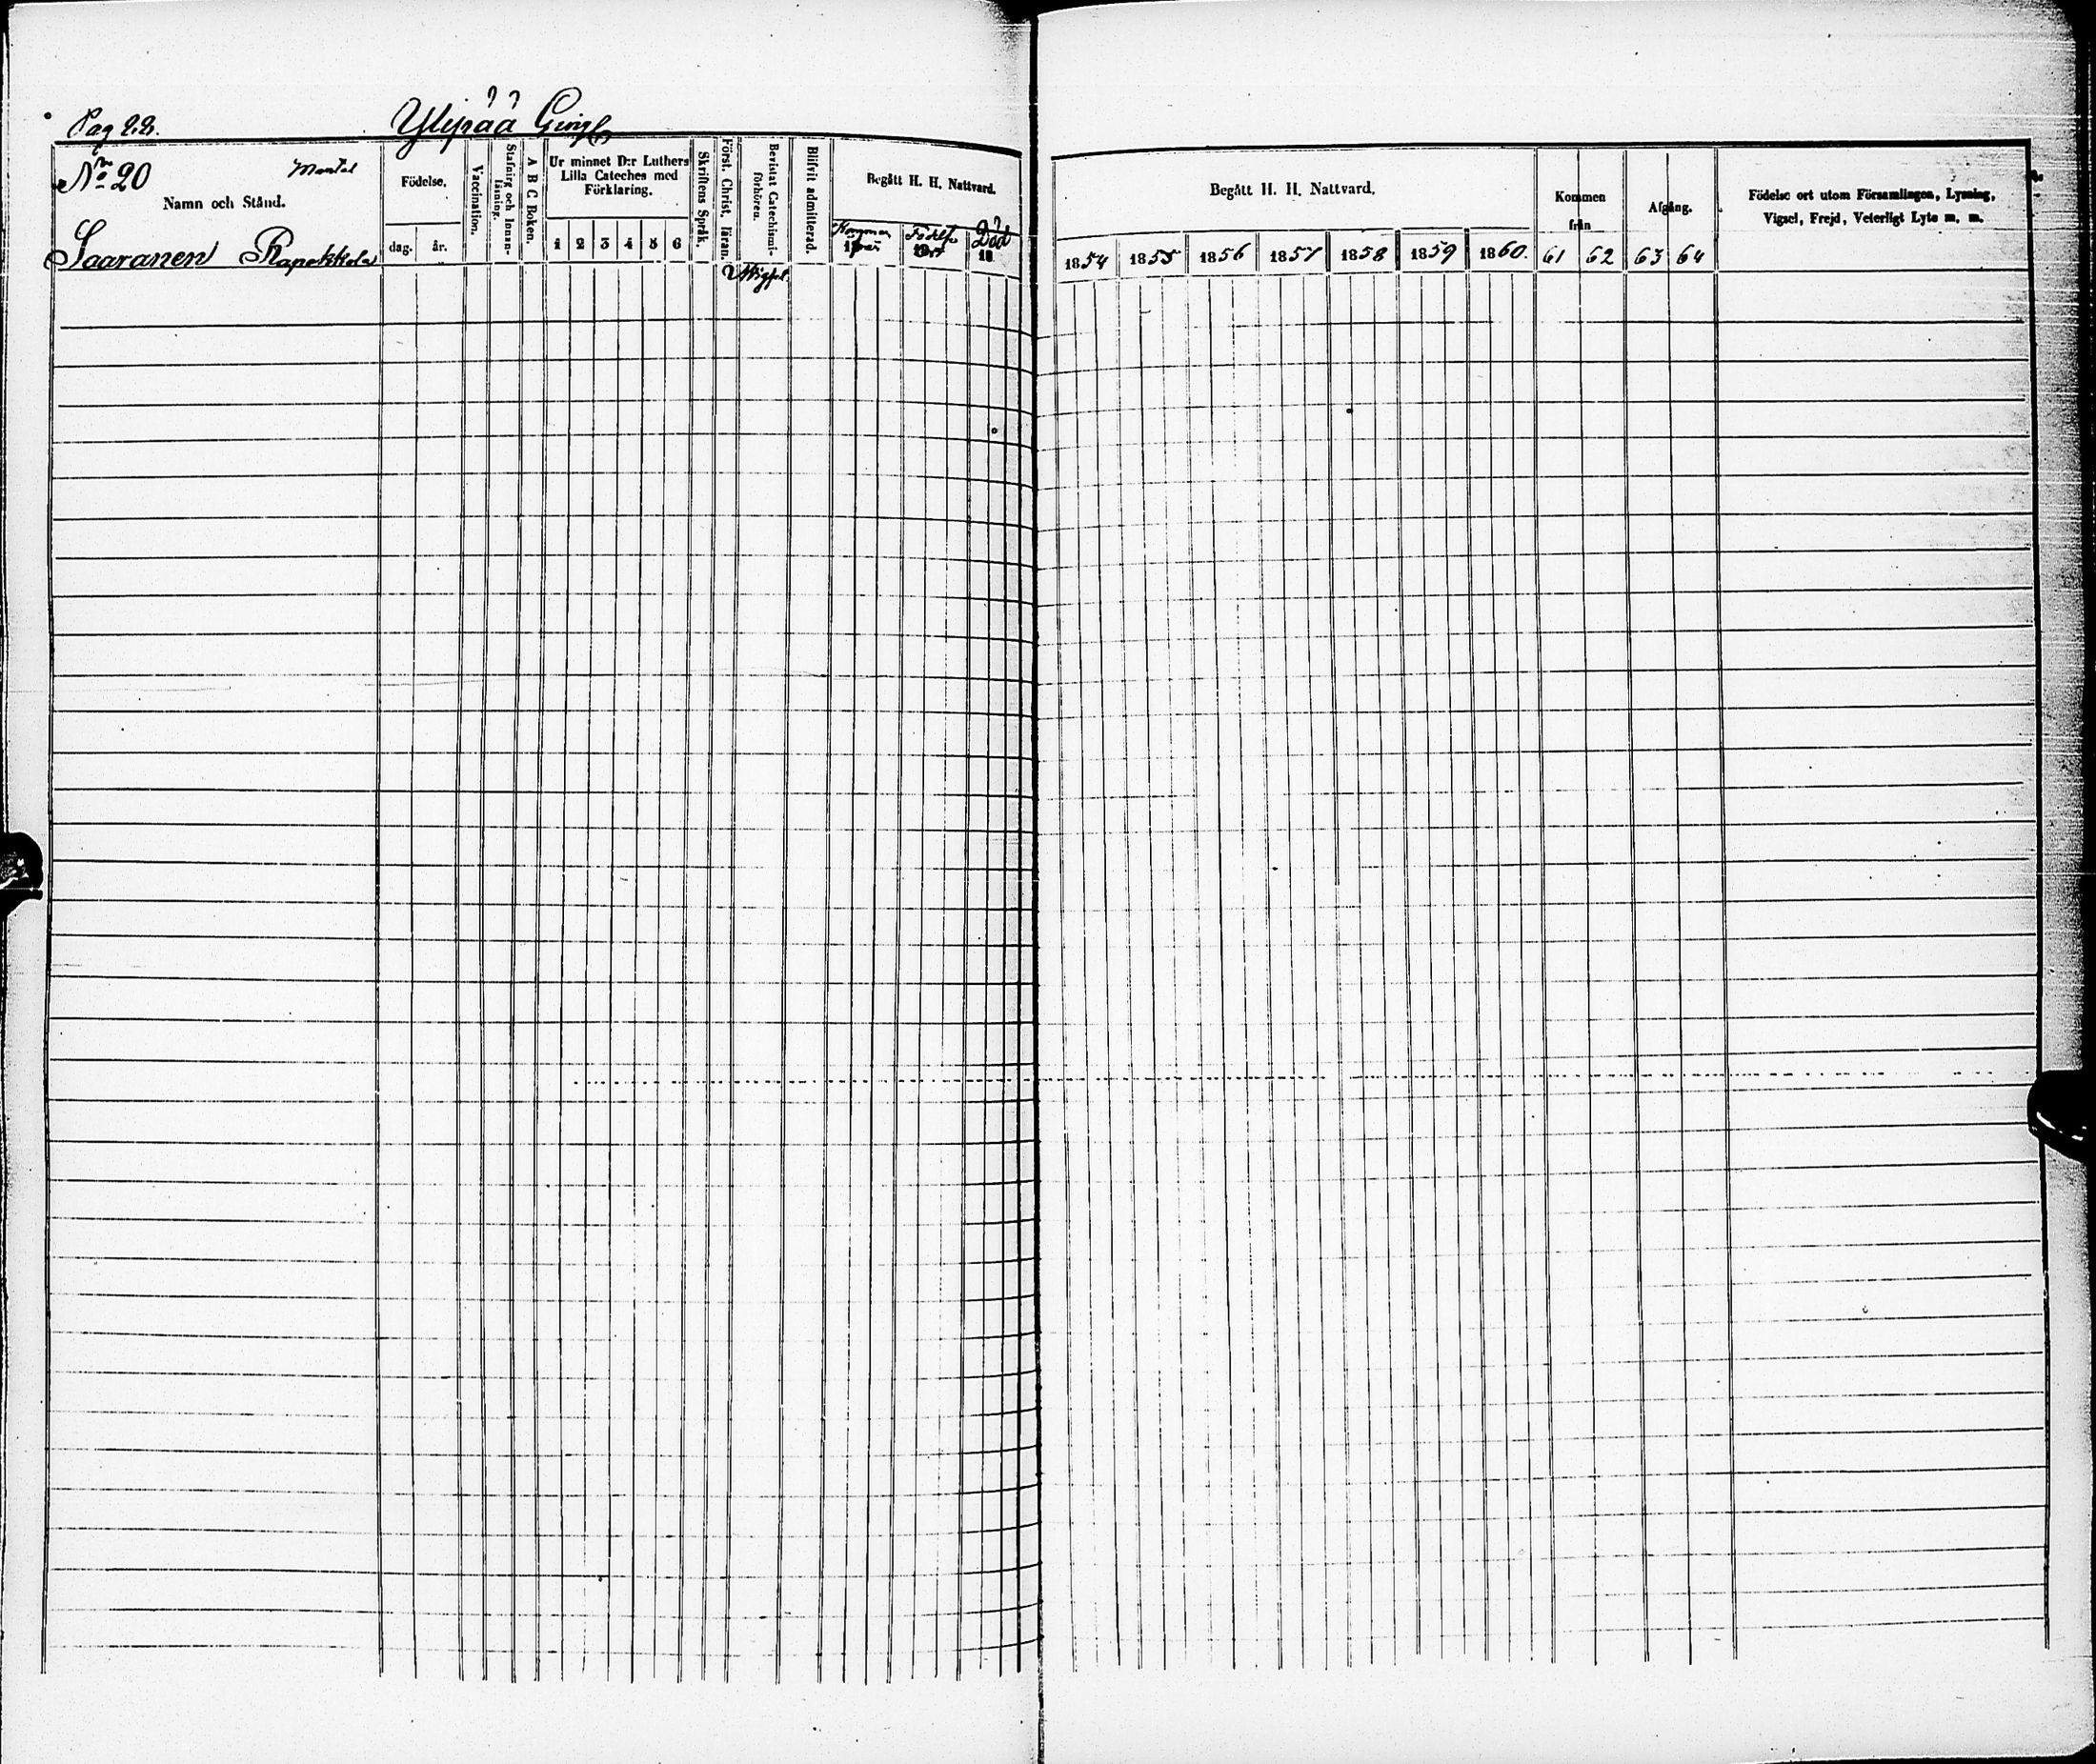 Pag 22. Ylipää
No 20 Mantal
Namn och Stånd.
Saaranen Rapakkola
Födelse.
dag. år.
Vaccination.
Stafning och Innan-
läsning.
A B C Boken.
Ur minnet D:r Luthers
Lilla Cateches med
Förklaring.
1 2 3 4 5 6
Skriftens Språk.
Först. Christ. läran.
Bevistat Catechismi-
förhören.
Blifvit admitterad.
Begått H. H. Nattvard.
Kommen Död
från 18
Begått H. H. Nattvard.
1854 1855 1856 1857 1858 1859 1860.
Kommen
från
61 62
Afgång.
63 64
Födelse ort utom Församlingen, Lysning,
Vigsel, Frejd, Veterligt Lyte m. m.